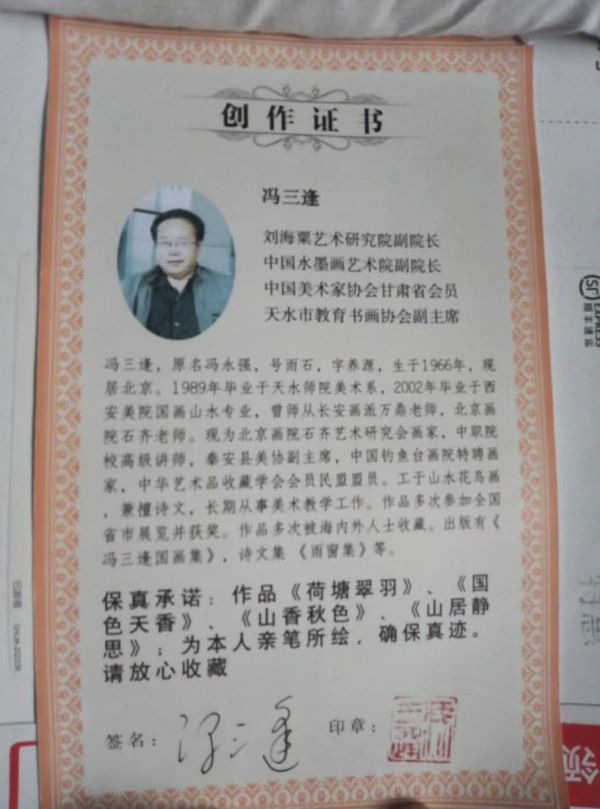 创作证书
冯三逢
刘海粟艺术研究院副院长
中国水墨画艺术院副院长
中国美术家协会甘肃省会员
天水市教育书画协会副主席
冯三逢，原名冯永强，号雨石，字养源，生于1966年，现
居北京。1989年毕业于天水师院美术系，2002年毕业于西
安美院国画山水专业，曾师从长安画派万鼎老师，北京画
院石齐老师。现为北京画院石齐艺术研究会画家，中职院
校高级讲师，秦安县美协副主席，中国钓鱼台画院特聘画
家，中华艺术品收藏学会会员民盟盟员。工于山水花鸟画
，兼擅诗文，长期从事美术教学工作。作品多次参加全国
省市展览并获奖。作品多次被海内外人士收藏。出版有《
冯三逢国画集》，诗文集《雨窗集》等。
保真承诺：作品《荷塘翠羽》、《国
色天香》、《山香秋色》、《山居静
思》；为本人亲笔所绘，确保真迹。
请放心收藏
签名：冯三逢 印章：
SF EXPRESS
顺丰速运
特惠
领